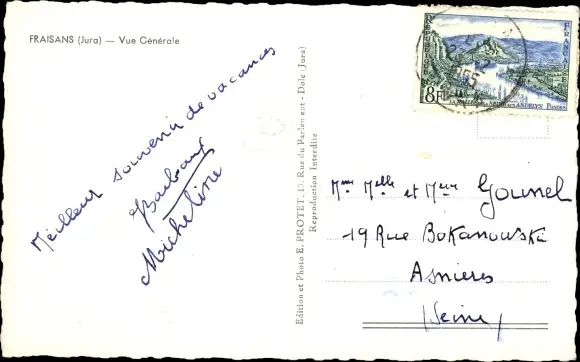 FRAISANS (Jura) — Vue Générale
Meilleur souvenir de vacances
Micheline
Edition et Photo E. PROTET, 15, Rue du Parlement - Dole (Jura)
Reproduction Interdite
RÉPUBLIQUE
FRANÇAISE
8F
LA VALLÉE DE LA SEINE AUX ANDELYS
POSTES
Mme Melle et Meur Gounel
19 Rue Bokanowski
Asnieres
(Seine)